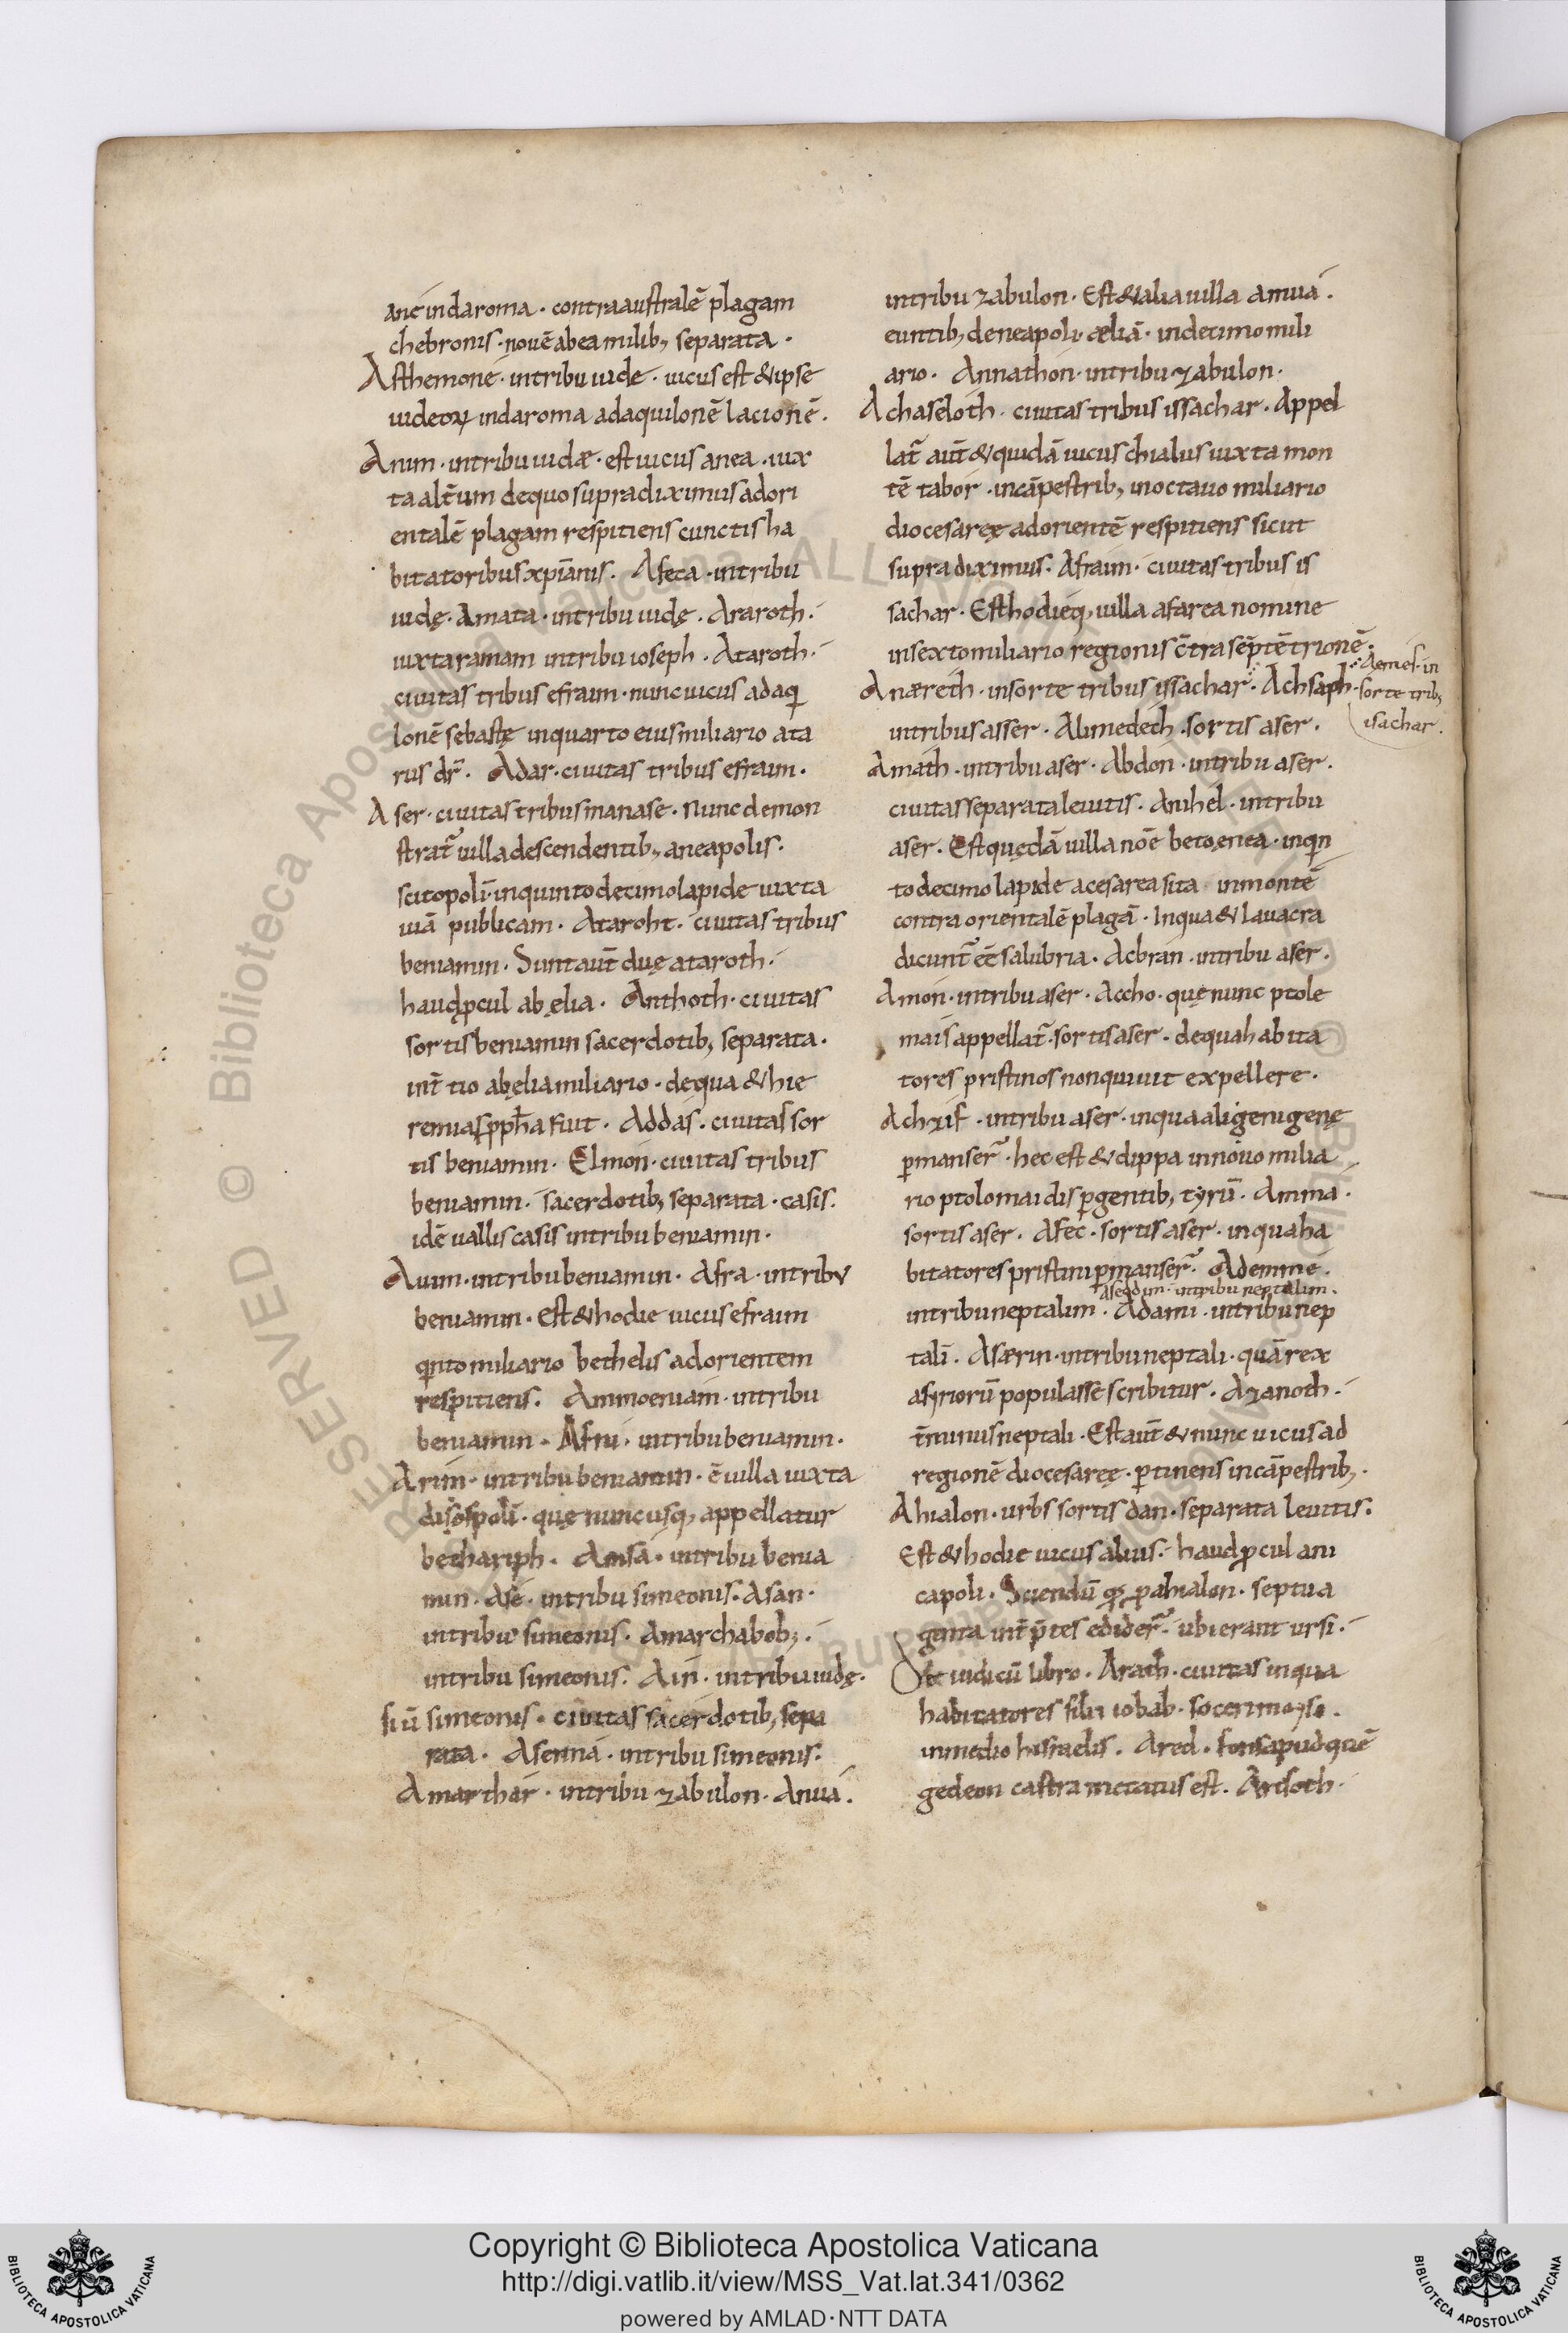 anc indaroma · contraaustralē plagam
chebronis · nouē abea milib; separata ·
Asthemone · intribu iude · uicus est & ipse
iudeoꝝ indaroma adaquilonē lacionē ·
Anim · intribu iudæ · est uicus anea · iux
ta alt̄um dequo supradiximus adori
entalē plagam respitiens cunctis ha
bitatoribus xp̄ianis. Afeca · intribu
iudę · Amata · intribu iudę · Araroth ·
iuxtaramam intribu ioseph · Ataroth ·
ciuitas tribus efraim · nunc uicus adaq
lonē sebastę inquarto eius miliario ata
rus dr̄ · Adar · ciuitas tribus efraim ·
Aser · ciuitas tribus manase · Nunc demon
strat̄ uilla descendentib; aneapolis ·
scitopolī · inquinto decimo lapide iuxta
uiā publicam · Ataroht · ciuitas tribus
beniamin · Sunt aut̄ duę ataroth ·
haud ꝓcul ab ęlia · Anthoth · ciuitas
sortis beniamin sacerdotib; separata ·
int̄ tio abęlia miliario · dequa & hie
remias ꝓph̄a fuit · Addas · ciuitas sor
tis beniamin · Elmon · ciuitas tribus
beniamin · sacerdotib; separata · casis ·
idē uallis casis intribu beniamin ·
Auim · intribu beniamin · Afra · intribv
beniamin · Est & hodie uicus efraim
qinto miliario bethelis ad orientem
respitiens. Ammoeniam · intribu
beniamin · Afni · intribu beniamin ·
Arim · intribu beniamin · ē uilla iuxta
disospolī · quę nunc usq; appellatur
bethariph · Amsā · intribu benia
min · Ase · intribu simeonis · Asan ·
intribu simeonis · Amarchabob; ·
intribu simeonis · Ain · intribu iudę ·
siū simeonis · ciuitas sacerdotib; sepa
rata · Asenna · intribu simeonis ·
Amarthar · intribu zabulon · Anua ·
intribu zabulon · Est & alia uilla anuá ·
euntib; de neapoli · æliā · indecimo mili
ario · Annathon · intribu zabulon ·
Achaseloth · ciuitas tribus issachar · Appel
lat̄ aut̄ & quidā uicus chialus iuxta mon
tē tabor · incāpestrib; inoctauo miliario
diocesareę adorientē respitiens sicut
supradiximus · Afraim · ciuitas tribus is
sachar · Est hodieq; uilla afarea nomine
insexto miliario regionis c̄tra sēptētrionē ·
Anæreth · insorte tribus issachar · Achsaph ·
Aemes · in
sorte trib;
isachar ·
intribus asser · Alimedech · sortis aser ·
Amath · intribu aser · Abdon · intribu aser ·
ciuitas separata leuitis · Anihel · intribu
aser · Est quędā uilla nōe betoęnea · inqin
to decimo lapide acesarea sita inmontē
contra orientalē plagā · Inqua & lauacra
dicunt̄ eē salubria · Acbran · intribu aser ·
Amon · intribu aser · Accho · quę nunc ptole
mais appellat̄ · sortis aser · dequa habita
tores pristinos non quiuit expellere ·
Achzif · intribu aser · inqua aligenigenę
ꝑmanser̄ · hec est & dippa innouo milia
rio ptolomaidis ꝑgentib; tyrū · Amma ·
sortis aser · Afec · sortis aser · inqua ha
bitatores pristini ꝑmanser̄ · Ademme ·
Asedim · intribu neptalim ·
intribu neptalim · Adami · intribu nep
talī · Asærin · intribu neptali · quā rex
asyriorū populasse scribitur · Azanoth ·
t̄minus neptali · Est aut̄ & nunc uicus ad
regionē diocesareę · ꝑtinens incāpestrib; ·
Ahialon · urbs sortis dan · separata leuitis ·
Est & hodie uicus alius · haud ꝓcul ani
capoli · Sciendū ꝓ ahialon · septua
ginta int̄p̄tes edider̄ · ubi erant ursi ·
De iudicū libro · Arath · ciuitas inqua
habitatores filii iobab · soceri moysi ·
inmedio hisraelis · Ared · fons apud quē
gedeon castra metatus est · Ardoth ·
Copyright © Biblioteca Apostolica Vaticana
http://digi.vatlib.it/view/MSS_Vat.lat.341/0362
powered by AMLAD·NTT DATA